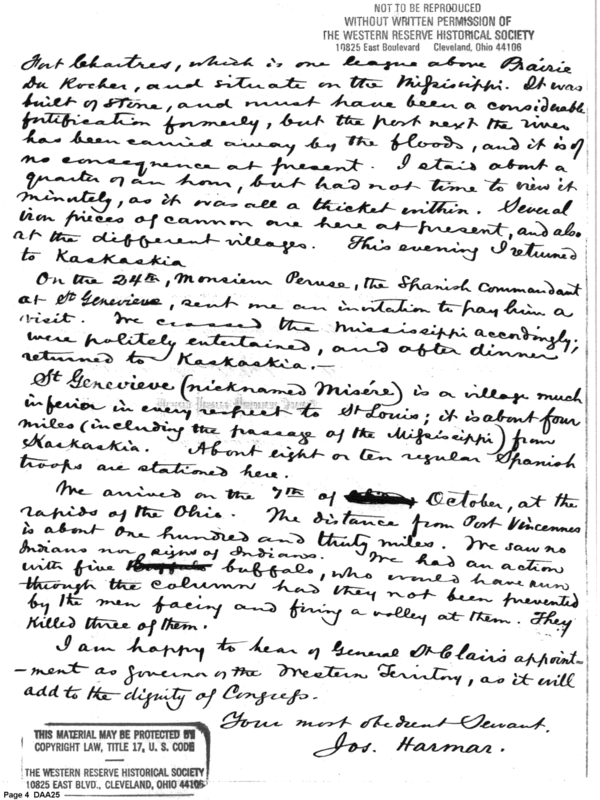 NOT TO BE REPRODUCED
WITHOUT WRITTEN PERMISSION OF
THE WESTERN RESERVE HISTORICAL SOCIETY
10825 East Boulevard Cleveland, Ohio 44106
Fort Chartres, which is one league above Prairie
Du Rocher, and situate on the Mississippi. It was
built of stone, and must have been a considerable
fortification formerly, but the part next the river
has been carried away by the floods, and it is of
no consequence at present. I staid about a
quarter of an hour, but had not time to view it
minutely, as it was all a thicket within. Several
iron pieces of cannon are here at present, and also
at the different villages. This evening I returned
to Kaskaskia
On the 24th, Monsieur Peruse, the Spanish Commandant
at St Genevieve, sent me an invitation to pay him a
visit. We crossed the Mississippi accordingly;
were politely entertained, and after dinner
returned to Kaskaskia.—
St Genevieve (nicknamed Misére) is a village much
inferior in every respect to St Louis; it is about four
miles (including the passage of the Mississippi) from
Kaskaskia. About eight or ten regular Spanish
troops are stationed here.
We arrived on the 7th of October, at the
rapids of the Ohio. The distance from Post Vincennes
is about one hundred and thirty miles. We saw no
Indians nor signs of Indians. We had an action
with five buffalo, who would have run
through the column had they not been prevented
by the men facing and firing a volley at them. They
killed three of them.
I am happy to hear of General St Clairs appoint-
-ment as governor of the Western Territory, as it will
add to the dignity of Congress.
Your most obedient Servant.
Jos. Harmar.
THIS MATERIAL MAY BE PROTECTED BY
COPYRIGHT LAW, TITLE 17, U. S. CODE
THE WESTERN RESERVE HISTORICAL SOCIETY
10825 EAST BLVD., CLEVELAND, OHIO 44106
Page 4 DAA25